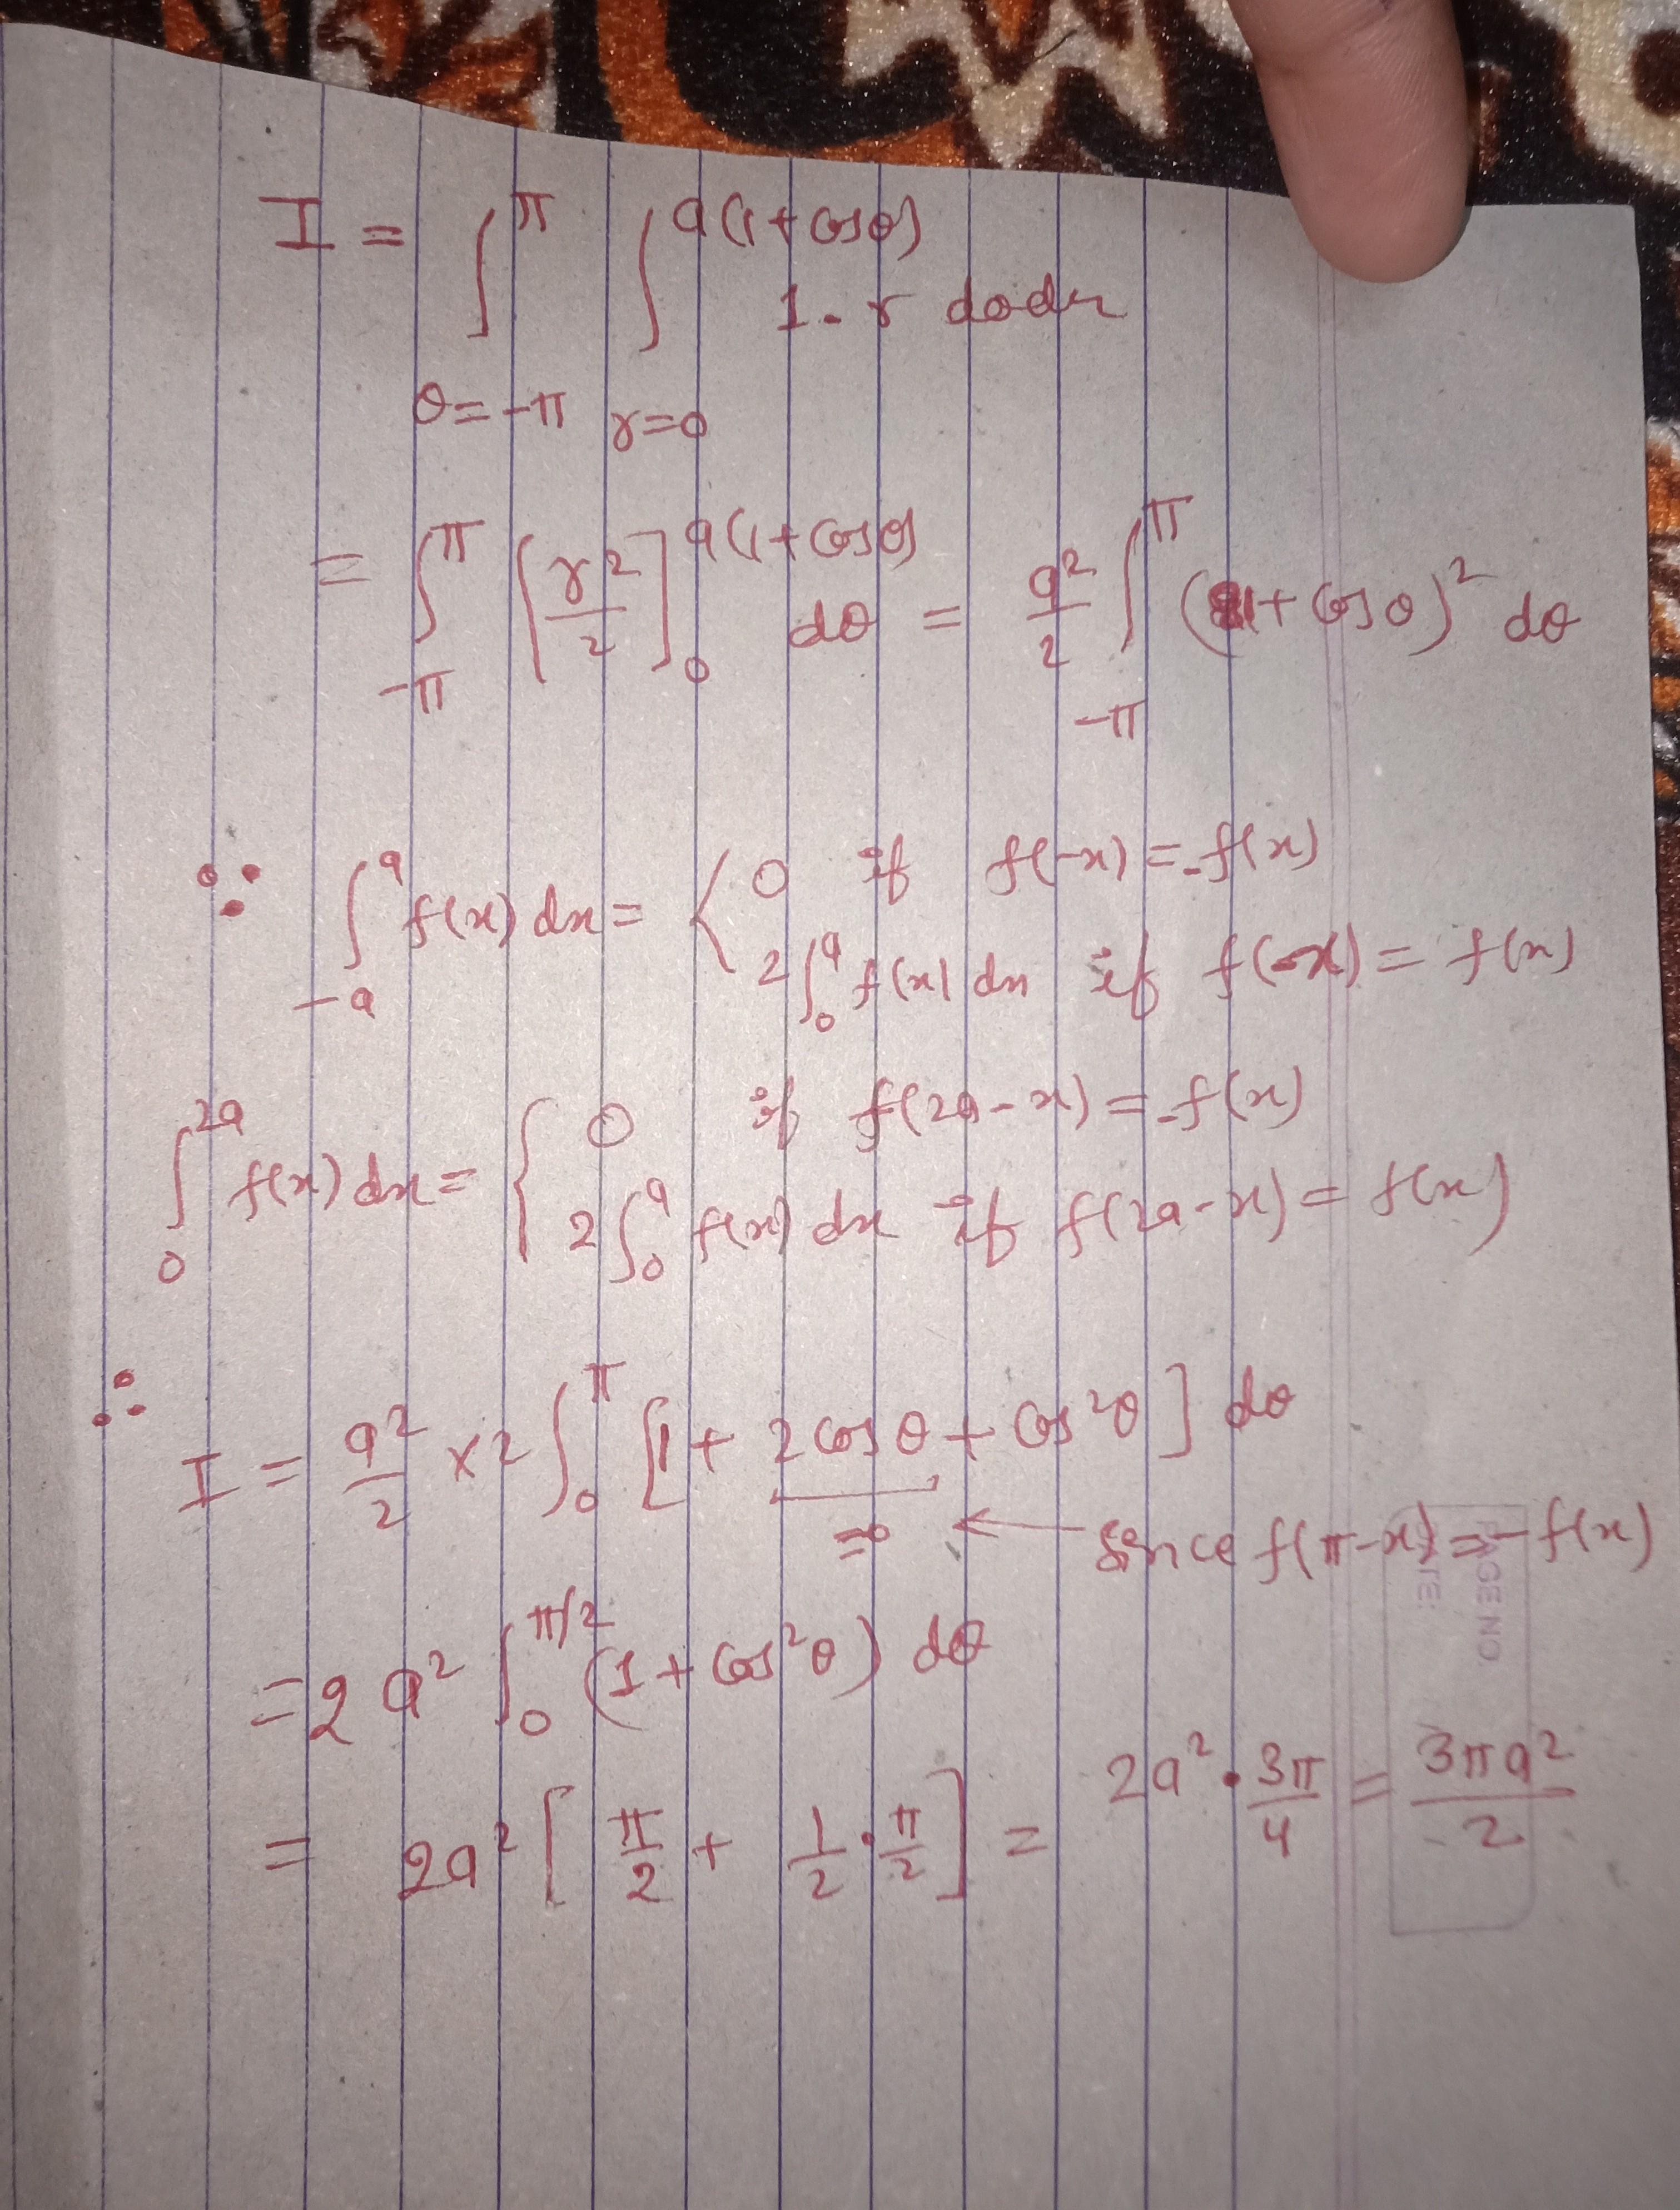 I = ∫_{θ=-π}^{π} ∫_{r=0}^{a(1+cosθ)} 1·r dθdr
= ∫_{-π}^{π} [r²/2]_0^{a(1+cosθ)} dθ = a²/2 ∫_{-π}^{π} (1+cosθ)² dθ
∵ ∫_{-a}^{a} f(x) dx = { 0 if f(-x) = -f(x)
2∫_0^a f(x) dx if f(-x) = f(x)
∫_0^{2a} f(x) dx = { 0 if f(2a-x) = -f(x)
2∫_0^a f(x) dx if f(2a-x) = f(x)
∴
I = a²/2 × 2 ∫_0^π [1 + 2cosθ + cos²θ] dθ
=0 ← since f(π-x) = -f(x)
= 2a² ∫_0^{π/2} (1 + cos²θ) dθ
= 2a² [π/2 + 1/2·π/2] = 2a²·3π/4 = 3πa²/2
PAGE NO.
DATE: